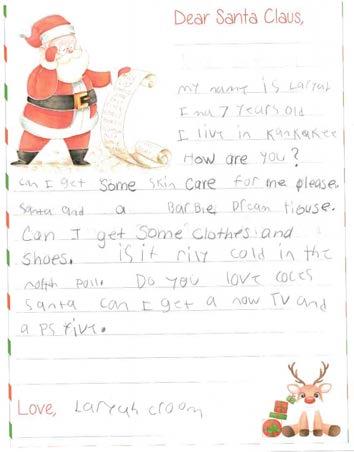 Dear Santa Claus,
my name is Laryah
I ma 7 years old
I live in Kankakee
How are you?
can I get some skin care for me please.
Santa and a Barbie Dream House.
Can I get some clothes and
shoes. is it rily cold in the
north poll. Do you love coces
Santa can I get a now TV and
a PS five.
Love, Laryah croom